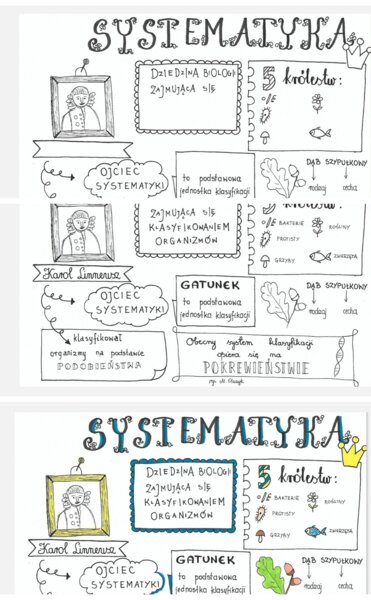 SYSTEMATYKA
DZIEDZINA BIOLOGII
ZAJMUJĄCA SIĘ
5 królestw:
OJCIEC
SYSTEMATYKI
to podstawowa
jednostka klasyfikacji
DĄB SZYPUŁKOWY
rodzaj cecha
ZAJMUJĄCA SIĘ
KLASYFIKOWANIEM
ORGANIZMÓW
BAKTERIE ROŚLINY
PROTISTY
GRZYBY ZWIERZĘTA
Karol Linneusz
OJCIEC
SYSTEMATYKI
GATUNEK
to podstawowa
jednostka klasyfikacji
DĄB SZYPUŁKOWY
rodzaj cecha
klasyfikował
organizmy na podstawie
PODOBIEŃSTWA
Obecny system klasyfikacji
opiera się na
POKREWIEŃSTWIE
SYSTEMATYKA
DZIEDZINA BIOLOGII
ZAJMUJĄCA SIĘ
KLASYFIKOWANIEM
ORGANIZMÓW
5 królestw:
BAKTERIE ROŚLINY
PROTISTY
GRZYBY ZWIERZĘTA
Karol Linneusz
OJCIEC
SYSTEMATYKI
GATUNEK
to podstawowa
jednostka klasyfikacji
DĄB SZYPUŁKOWY
rodzaj cecha